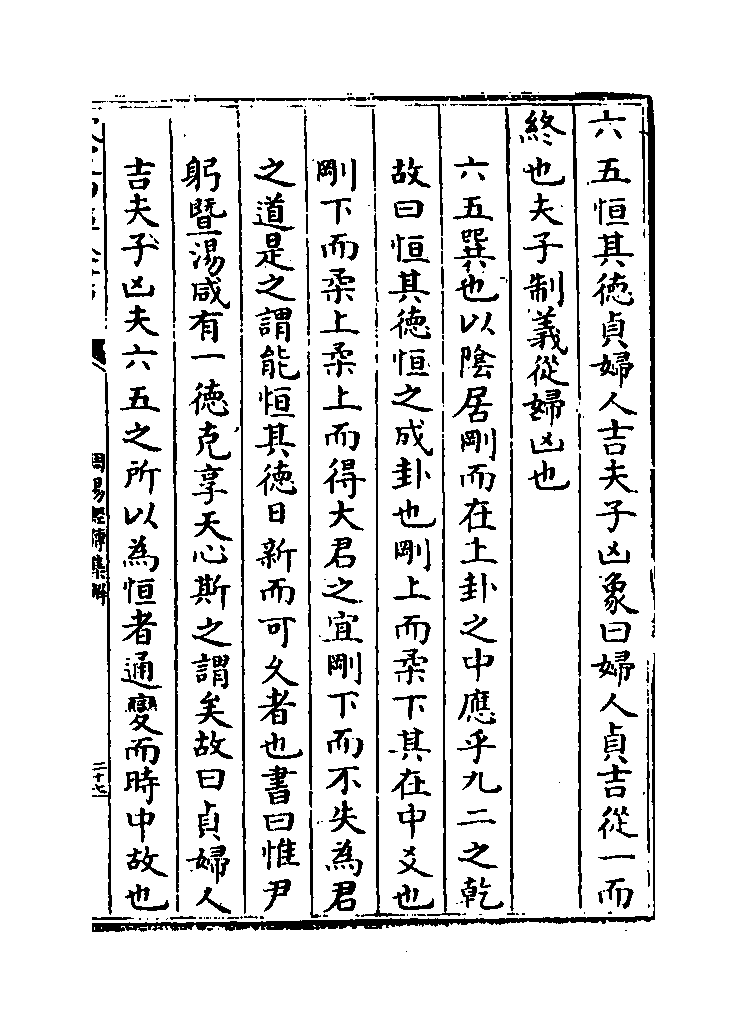 六五恒其徳貞婦人吉夫子凶象曰婦人貞吉從一而
終也夫子制義從婦凶也
六五巽也以陰居剛而在上卦之中應乎九二之乾
故曰恒其徳恒之成卦也剛上而柔下其在中爻也
剛下而柔上柔上而得大君之宜剛下而不失為君
之道是之謂能恒其徳日新而可久者也書曰惟尹
躬暨湯咸有一徳克享天心斯之謂矣故曰貞婦人
吉夫子凶夫六五之所以為恒者通變而時中故也
周易經傳集解
二十七